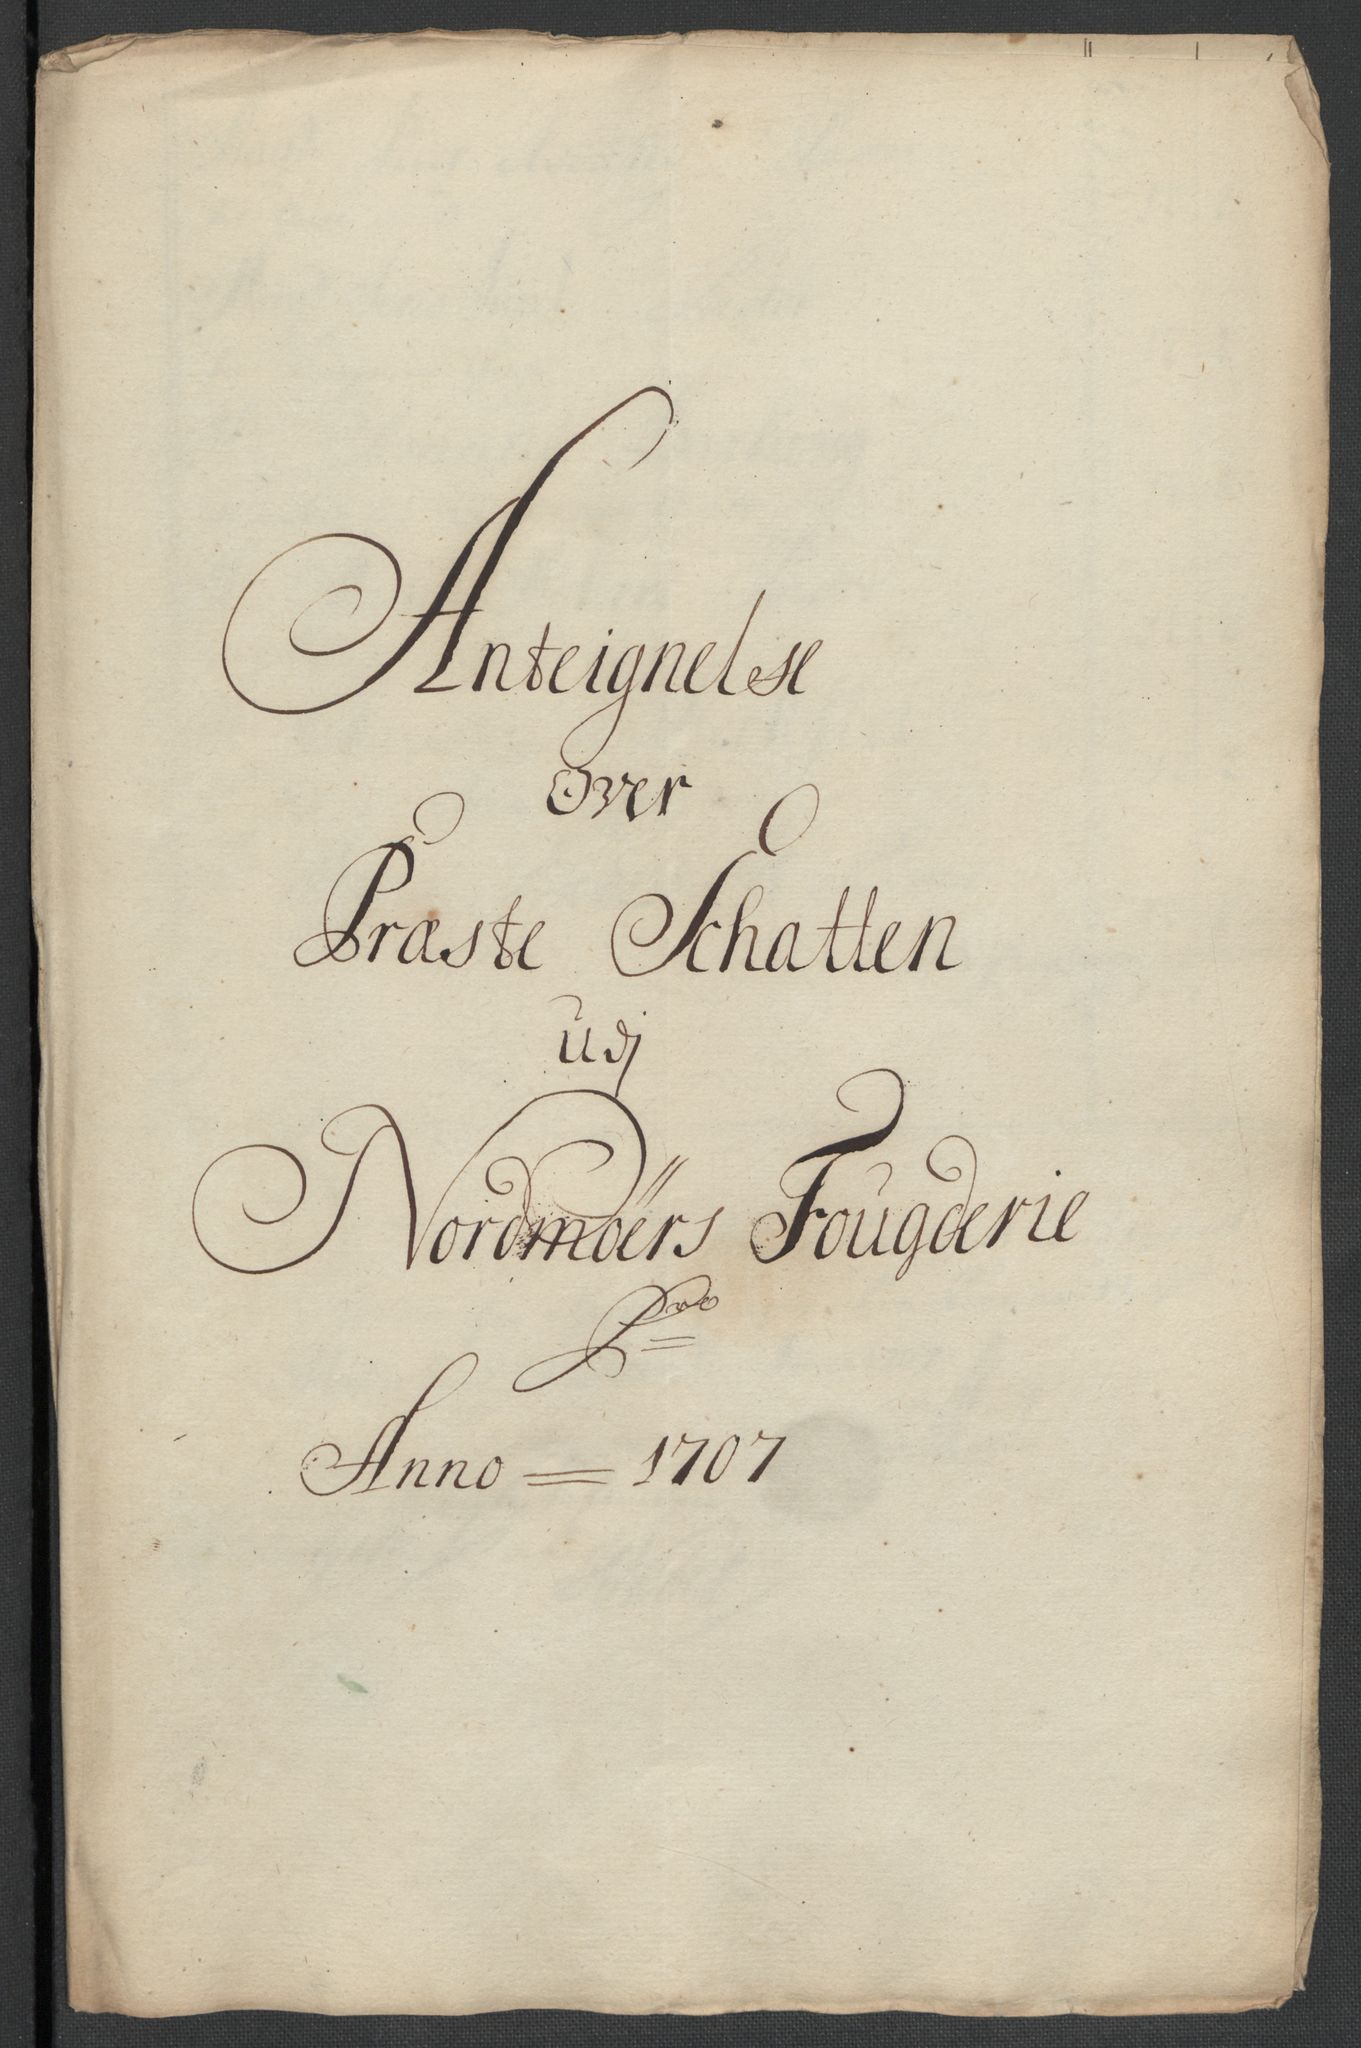 Anteignelse
over
Præste Schatten
udj
Nordmöers Fougderie
Pro
Anno = 1707